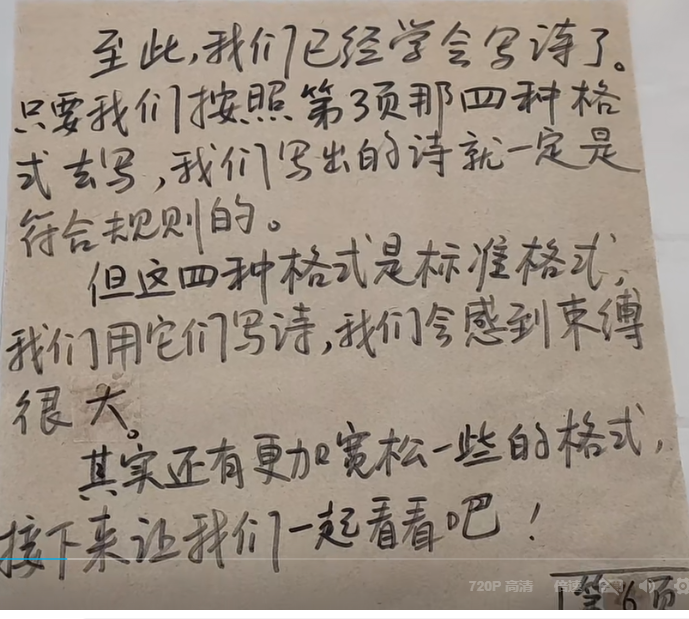 至此,我们已经学会写诗了。
只要我们按照第3页那四种格
式去写,我们写出的诗就一定是
符合规则的。
但这四种格式是标准格式,
我们用它们写诗,我们会感到束缚
很大。
其实还有更加宽松一些的格式,
接下来让我们一起看看吧!
720P 高清 倍速
第6页